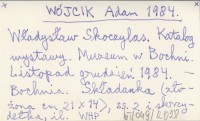 WÓJCIK Adam 1984.
Władysław Skoczylas. Katalog
wystawy. Muzeum w Bochni.
Listopad grudzień 1984. —
Bochnia. Składanka (zło-
żona cm 21 x 14), ss. 2 i skrzy-
dełka, il. WAP